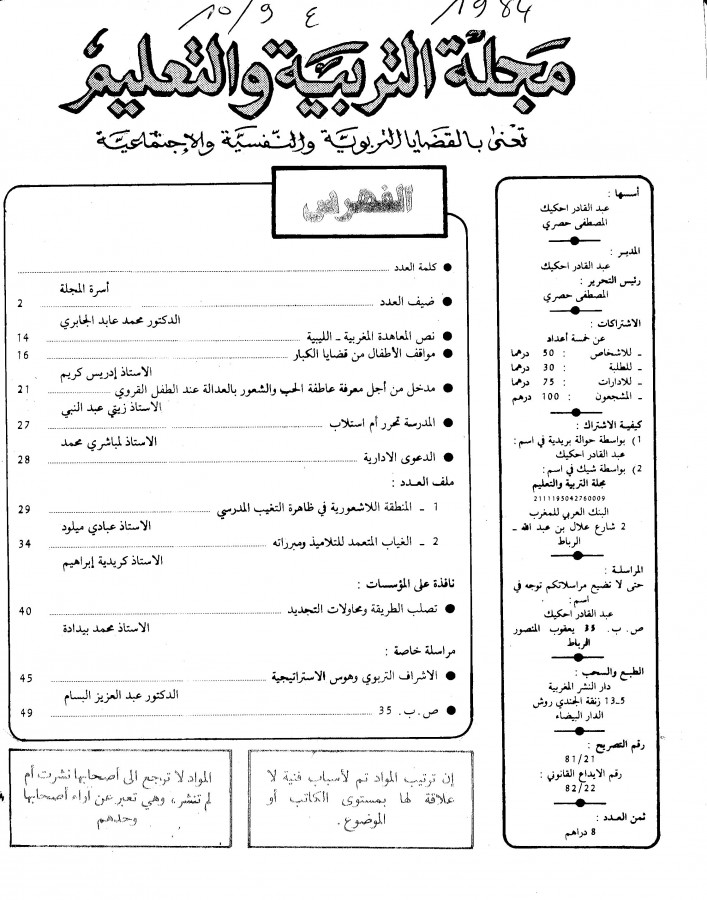 10/9 ع 1984
مجلة التربية والتعليم
تعنى بالقضايا التربوية والنفسية والإجتماعية
أسسها :
عبد القادر احكيك
المصطفى حصري
المدير :
عبد القادر احكيك
رئيس التحرير :
المصطفى حصري
الاشتراكات :
عن خمسة أعداد
ـ للاشخاص : 50 درهما
ـ للطلبة : 30 درهما
ـ للادارات : 75 درهما
ـ المشجعون : 100 درهم
كيفية الاشتراك :
1) بواسطة حوالة بريدية في اسم :
عبد القادر احكيك
2) بواسطة شيك في اسم :
مجلة التربية والتعليم
2111195042760009
البنك العربي للمغرب
2 شارع علال بن عبد الله ـ
الرباط
المراسلة :
حتى لا تضيع مراسلاتكم توجه في
اسم :
عبد القادر احكيك
ص. ب. 35 يعقوب المنصور
الرباط
الطبع والسحب :
دار النشر المغربية
5ـ13 زنقة الجندي روش
الدار البيضاء
رقم التصريح :
81/21
رقم الايداع القانوني :
82/22
ثمن العدد :
8 دراهم
الفهرس
● كلمة العدد
أسرة المجلة
● ضيف العدد 2
الدكتور محمد عابد الجابري
● نص المعاهدة المغربية ـ الليبية 14
● مواقف الأطفال من قضايا الكبار 16
الاستاذ إدريس كريم
● مدخل من أجل معرفة عاطفة الحب والشعور بالعدالة عند الطفل القروي 21
الاستاذ زيتي عبد النبي
● المدرسة تحرر أم استلاب 27
الاستاذ لمباشري محمد
● الدعوى الادارية 28
ملف العدد :
1 ـ المنطقة اللاشعورية في ظاهرة التغيب المدرسي 29
الاستاذ عبادي ميلود
2 ـ الغياب المتعمد للتلاميذ ومبرراته 34
الاستاذ كريدية إبراهيم
نافذة على المؤسسات :
● تصلب الطريقة ومحاولات التجديد 40
الاستاذ محمد بيدادة
مراسلة خاصة :
● الاشراف التربوي وهوس الاستراتيجية 45
الدكتور عبد العزيز البسام
● ص. ب. 35 49
إن ترتيب المواد تم لأسباب فنية لا
علاقة لها بمستوى الكاتب أو
الموضوع.
المواد لا ترجع الى أصحابها نشرت أم
لم تنشر، وهي تعبر عن آراء أصحابها
وحدهم